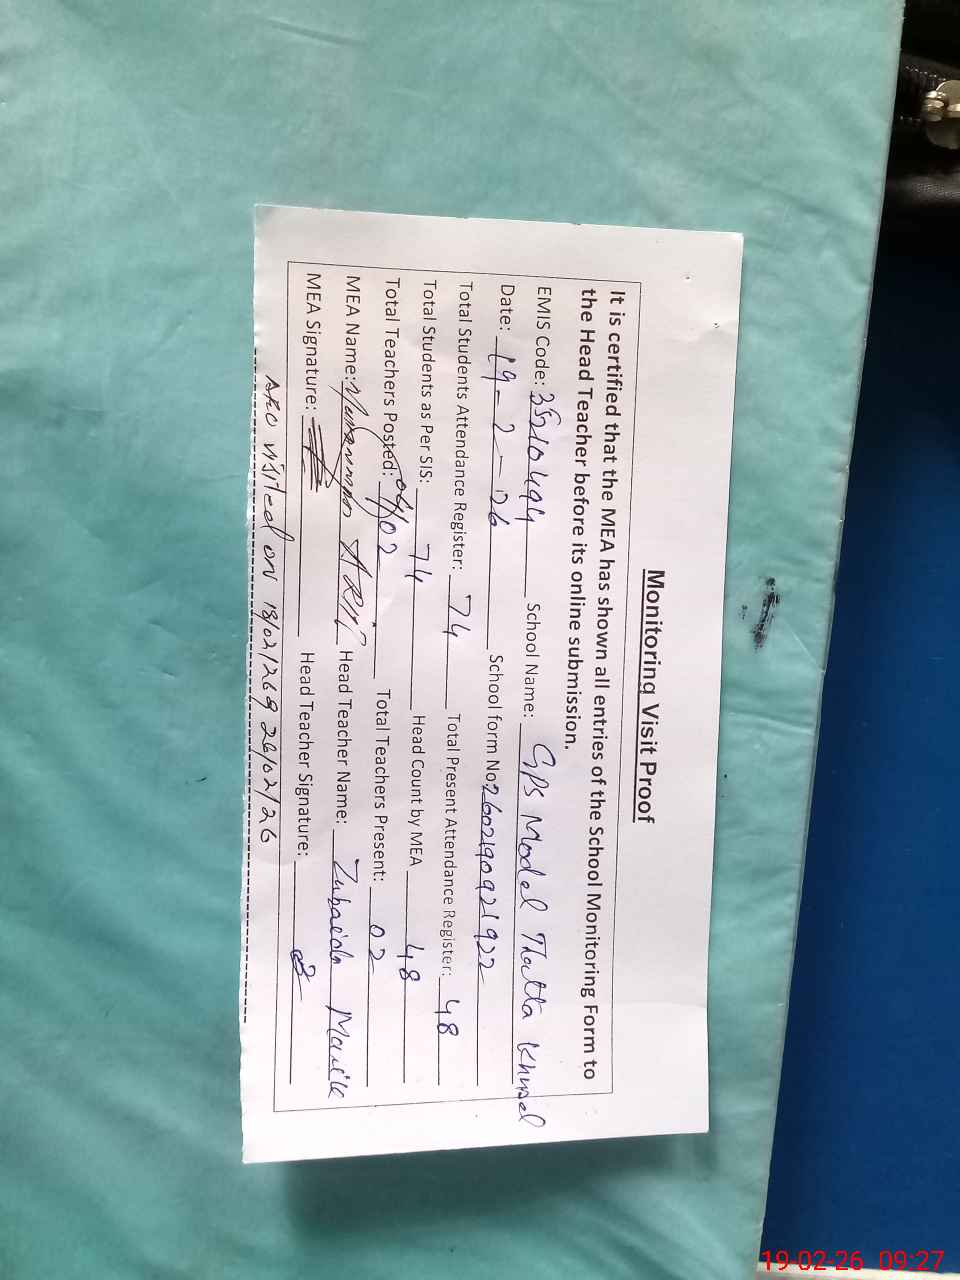 Monitoring Visit Proof
It is certified that the MEA has shown all entries of the School Monitoring Form to
the Head Teacher before its online submission.
EMIS Code: School Name: GPS Model Thatta
Date: 19-2-26 School form No: 2602190921922
Total Students Attendance Register: 74 Total Present Attendance Register: 48
Total Students as Per SIS: 74 Head Count by MEA 48
Total Teachers Posted: 04/02 Total Teachers Present: 02
MEA Name: Muhammad ARIF Head Teacher Name: Zubaida
MEA Signature: Head Teacher Signature:
visited on 18/02/26
19-02-26 09:27